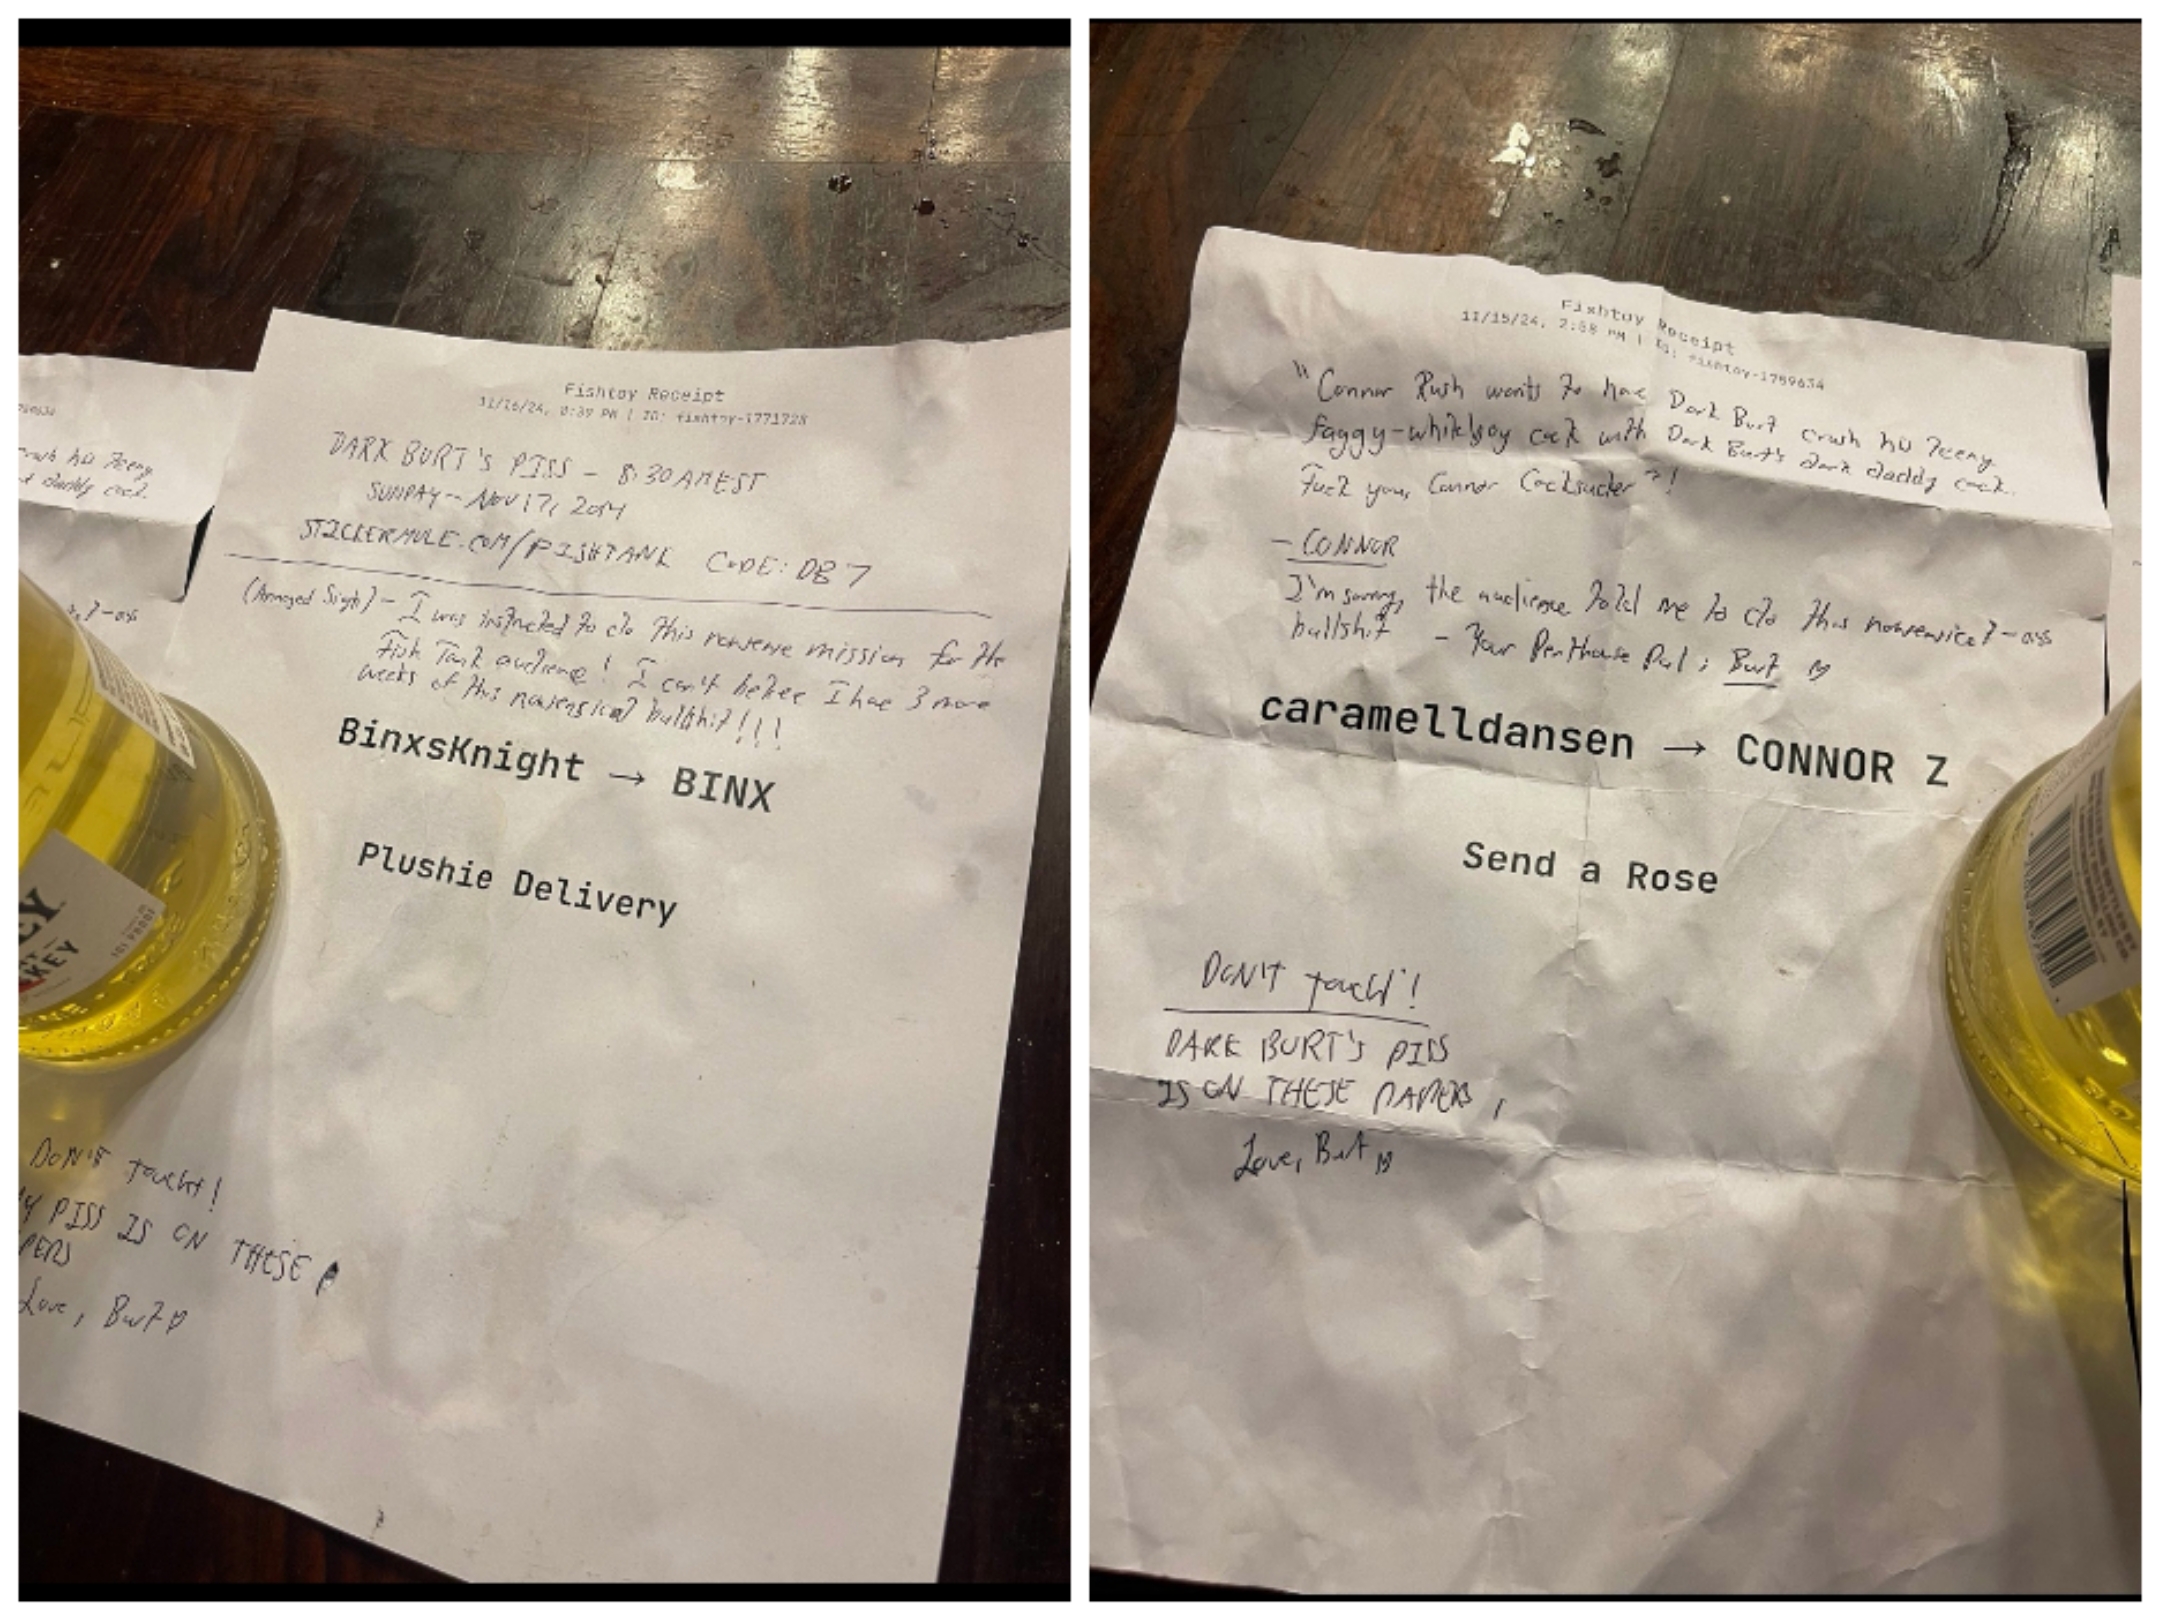 Fishtoy Receipt
11/16/24, 8:39 PM | ID: fishtoy-1771728
DARK BURT'S PISS – 8:30 AM EST
SUNDAY -- NOV 17, 2014
STICKERMULE.COM/FISHTANK CODE: DB7
(Annoyed Sigh) – I was instructed to do this nonsense mission for the
Fish Tank audience! I can't believe I have 3 more
weeks of this nonsensical bullshit!!!
BinxsKnight → BINX
Plushie Delivery
crush his teeny
daddy cock.
-ass
KEY
101 PROOF
DON'T TOUCH!
MY PISS IS ON THESE
PERS
Love, Burt
Fishtoy Receipt
11/15/24, 2:58 PM | ID: fishtoy-1759634
"Connor Rush wants to have Dark Burt crush his teeny
faggy-whiteboy cock with Dark Burt's dark daddy cock.
Fuck you, Connor Cocksucker"!
– CONNOR
I'm sorry, the audience told me to do this nonsensical-ass
bullshit – Your Penthouse Pal, Burt
caramelldansen → CONNOR Z
Send a Rose
DON'T TOUCH!
DARK BURT'S PISS
IS ON THESE PAPERS,
Love, Burt